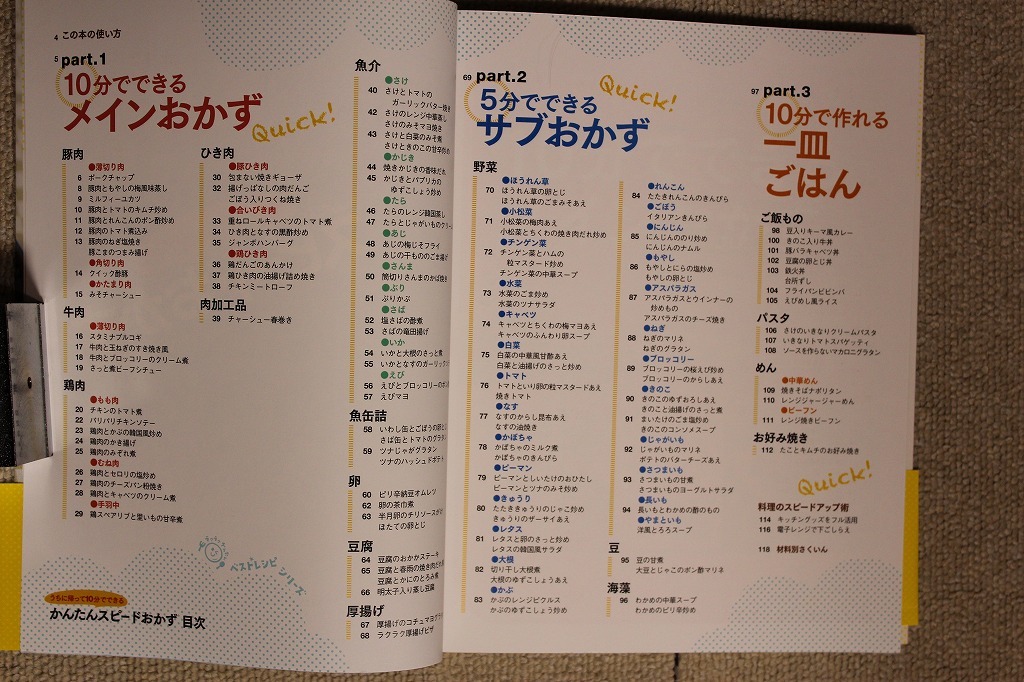 4 この本の使い方
5 part.1
10分でできる
メインおかず
Quick!
豚肉
●薄切り肉
6 ポークチャップ
8 豚肉ともやしの梅風味蒸し
9 ミルフィーユカツ
10 豚肉とトマトのキムチ炒め
11 豚肉とれんこんのポン酢炒め
12 豚肉のトマト煮込み
13 豚肉のねぎ塩焼き
豚こまのつまみ揚げ
●角切り肉
14 クイック酢豚
●かたまり肉
15 みそチャーシュー
牛肉
●薄切り肉
16 スタミナプルコギ
17 牛肉と玉ねぎのすき焼き風
18 牛肉とブロッコリーのクリーム煮
19 さっと煮ビーフシチュー
鶏肉
●もも肉
20 チキンのトマト煮
22 パリパリチキンソテー
23 鶏肉とかぶの韓国風炒め
24 鶏肉のかき揚げ
25 鶏肉のみぞれ煮
●むね肉
26 鶏肉とセロリの塩炒め
27 鶏肉のチーズパン粉焼き
28 鶏肉とキャベツのクリーム煮
●手羽中
29 鶏スペアリブと里いもの甘辛煮
ひき肉
●豚ひき肉
30 包まない焼きギョーザ
32 揚げっぱなしの肉だんご
ごぼう入りつくね焼き
●合いびき肉
33 重ねロールキャベツのトマト煮
34 ひき肉となすの黒酢炒め
35 ジャンボハンバーグ
●鶏ひき肉
36 鶏だんごのあんかけ
37 鶏ひき肉の油揚げ詰め焼き
38 チキンミートローフ
肉加工品
39 チャーシュー春巻き
魚介
●さけ
40 さけとトマトの
ガーリックバター焼き
42 さけのレンジ中華蒸し
さけのみそマヨ焼き
43 さけと白菜のみそ煮
さけときのこの甘辛炒め
●かじき
44 焼きかじきの香味だれ
45 かじきとパプリカの
ゆずこしょう炒め
●たら
46 たらのレンジ韓国蒸し
47 たらとじゃがいものクリーム
●あじ
48 あじの梅じそフライ
49 あじの干もののごま揚げ
●さんま
50 筒切りさんまのかば焼き
●ぶり
51 ぶりかぶ
●さば
52 塩さばの酢煮
53 さばの竜田揚げ
●いか
54 いかと大根のさっと煮
55 いかとなすのガーリック
●えび
56 えびとブロッコリーの
57 えびマヨ
魚缶詰
58 いわし缶とごぼうの卵とじ
さば缶とトマトのグラタン
59 ツナじゃがグラタン
ツナのハッシュドポテト
卵
60 ピリ辛納豆オムレツ
62 卵の茶巾煮
63 半月卵のチリソースがけ
ほたての卵とじ
豆腐
64 豆腐のおかかステーキ
65 豆腐と春雨の焼き肉だれ
豆腐とかにのとろみ煮
66 明太子入り蒸し豆腐
厚揚げ
67 厚揚げのコチュマヨグラタン
68 ラクラク厚揚げピザ
ベストレシピ シリーズ
うちに帰って10分でできる
かんたんスピードおかず 目次
69 part.2
5分でできる
サブおかず
Quick!
野菜
●ほうれん草
70 ほうれん草の卵とじ
ほうれん草のごまみそあえ
●小松菜
71 小松菜の梅肉あえ
小松菜とちくわの焼き肉だれ炒め
●チンゲン菜
72 チンゲン菜とハムの
粒マスタード炒め
チンゲン菜の中華スープ
●水菜
73 水菜のごま炒め
水菜のツナサラダ
●キャベツ
74 キャベツとちくわの梅マヨあえ
キャベツのふんわり卵スープ
●白菜
75 白菜の中華風甘酢あえ
白菜と油揚げのさっと炒め
●トマト
76 トマトといり卵の粒マスタードあえ
焼きトマト
●なす
77 なすのからし昆布あえ
なすの油焼き
●かぼちゃ
78 かぼちゃのミルク煮
かぼちゃのきんぴら
●ピーマン
79 ピーマンとしいたけのおひたし
ピーマンとツナのみそ炒め
●きゅうり
80 たたききゅうりのじゃこ炒め
きゅうりのザーサイあえ
●レタス
81 レタスと卵のさっと炒め
レタスの韓国風サラダ
●大根
82 切り干し大根煮
大根のゆずこしょうあえ
●かぶ
83 かぶのレンジピクルス
かぶのゆずこしょう炒め
●れんこん
84 たたきれんこんのきんぴら
●ごぼう
イタリアンきんぴら
●にんじん
85 にんじんののり炒め
にんじんのナムル
●もやし
86 もやしとにらの塩炒め
もやしの卵とじ
●アスパラガス
87 アスパラガスとウインナーの
炒めもの
アスパラガスのチーズ焼き
●ねぎ
88 ねぎのマリネ
ねぎのグラタン
●ブロッコリー
89 ブロッコリーの桜えび炒め
ブロッコリーのからしあえ
●きのこ
90 きのこのゆずおろしあえ
きのこと油揚げのさっと煮
91 まいたけのごま塩炒め
きのこのコンソメスープ
●じゃがいも
92 じゃがいものマリネ
ポテトのバターチーズあえ
●さつまいも
93 さつまいもの甘煮
さつまいものヨーグルトサラダ
●長いも
94 長いもとわかめの酢のもの
●やまといも
洋風とろろスープ
豆
95 豆の甘煮
大豆とじゃこのポン酢マリネ
海藻
96 わかめの中華スープ
わかめのピリ辛炒め
97 part.3
10分で作れる
一皿
ごはん
ご飯もの
98 豆入りキーマ風カレー
100 きのこ入り牛丼
101 豚バラキャベツ丼
102 豆腐の卵とじ丼
103 鉄火丼
台所ずし
104 フライパンビビンバ
105 えびめし風ライス
パスタ
106 さけのいきなりクリームパスタ
107 いきなりトマトスパゲッティ
108 ソースを作らないマカロニグラタン
めん
●中華めん
109 焼きそばナポリタン
110 レンジジャージャーめん
●ビーフン
111 レンジ焼きビーフン
お好み焼き
112 たことキムチのお好み焼き
Quick!
料理のスピードアップ術
114 キッチングッズをフル活用
116 電子レンジで下ごしらえ
118 材料別さくいん